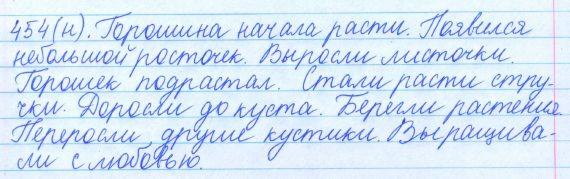 454(н). Горошина начала расти. Появился
небольшой росточек. Выросли листочки.
Горошек подрастал. Стали расти стру-
чки. Доросли до куста. Берегли растение.
Переросли другие кустики. Выращива-
ли с любовью.